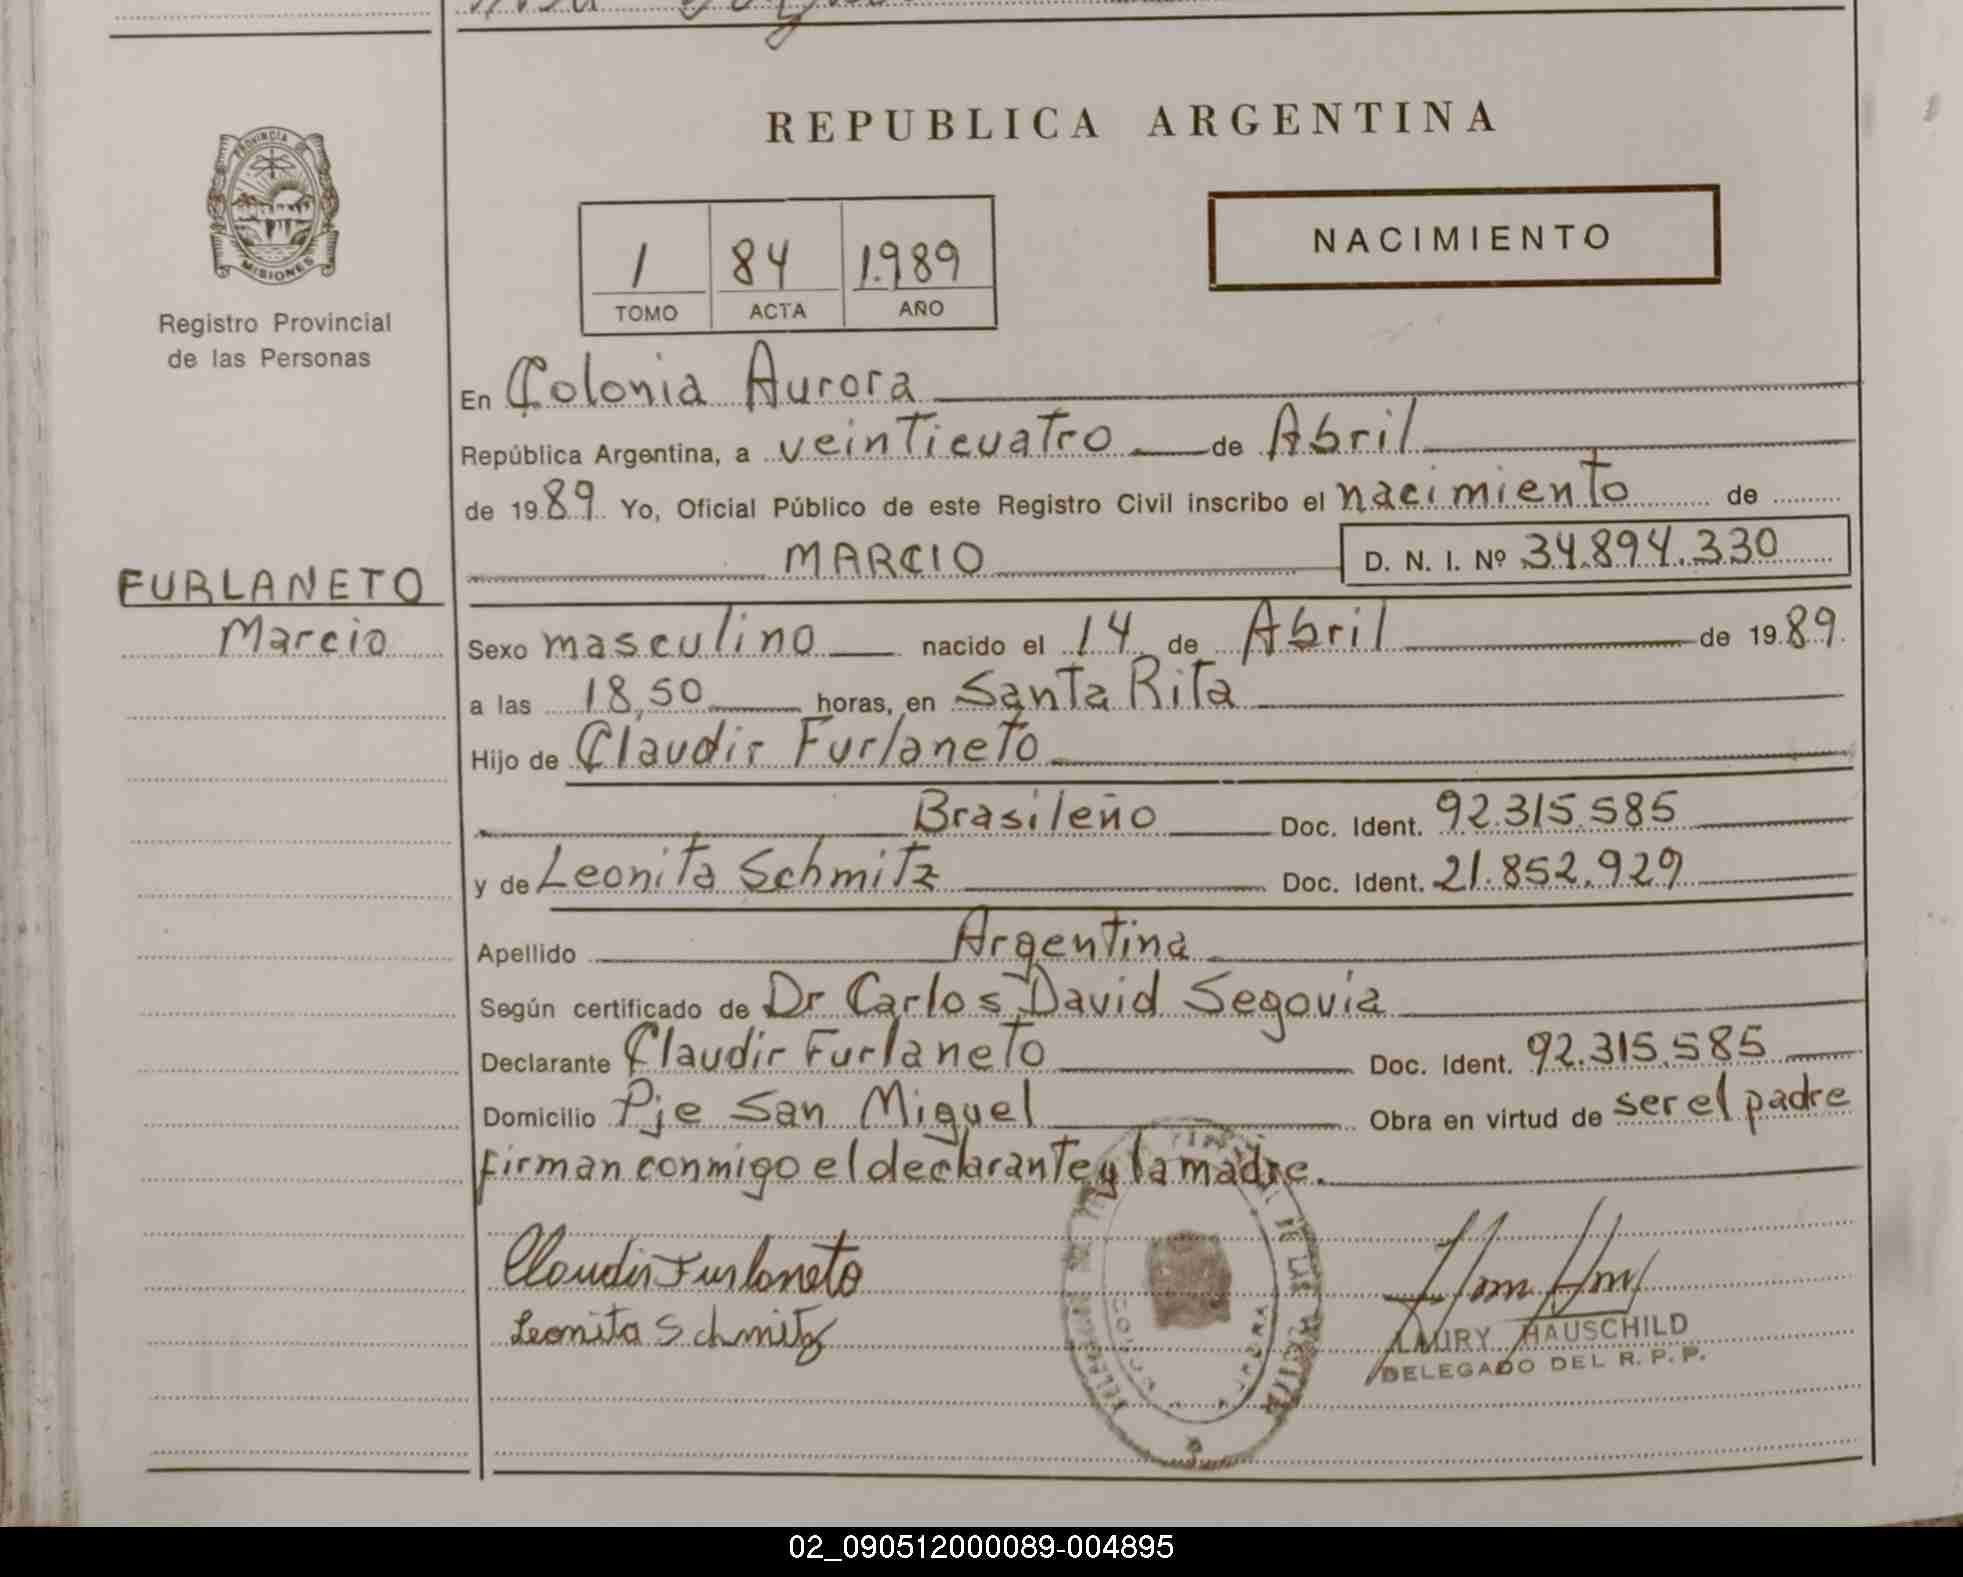 PROVINCIA DE
MISIONES
Registro Provincial
de las Personas
FURLANETO
Marcio
REPUBLICA ARGENTINA
1 84 1.989
TOMO ACTA AÑO
NACIMIENTO
En Colonia Aurora
República Argentina, a veinticuatro de Abril
de 1989 Yo, Oficial Público de este Registro Civil inscribo el nacimiento de
MARCIO D. N. I. Nº 34.894.330
Sexo masculino nacido el 14 de Abril de 1989.
a las 18,50 horas, en Santa Rita
Hijo de Claudir Furlaneto
Brasileño Doc. Ident. 92.315.585
y de Leonita Schmitz Doc. Ident. 21.852.929
Apellido Argentina
Según certificado de Dr Carlos David Segovia
Declarante Claudir Furlaneto Doc. Ident. 92.315.585
Domicilio Pje San Miguel Obra en virtud de ser el padre
firman conmigo el declarante y la madre.
Claudir Furlaneto
Leonita Schmitz
LAURY HAUSCHILD
DELEGADO DEL R. P. P.
02_090512000089-004895